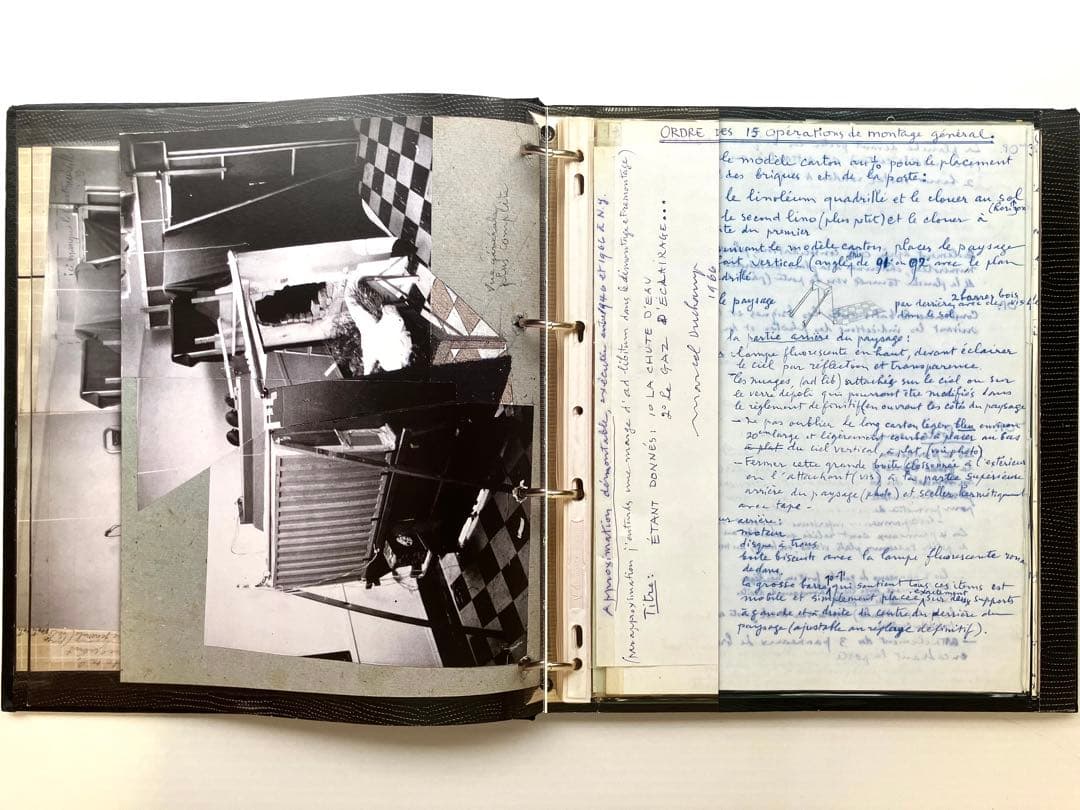 Vue générale
plus complète
Approximation démontable, exécutée entre 1946 et 1966 à N.Y.
(par approximation j'entends une marge d'ad libitum dans le démontage et remontage)
Titre: ÉTANT DONNÉS: 1º LA CHUTE D'EAU
2º LE GAZ D'ÉCLAIRAGE...
Marcel Duchamp
1966
ORDRE des 15 opérations de montage général.
le modèle carton au pour le placement
des briques et de la porte:
le linoléum quadrillé et le clouer au sol
(horizon
le second lino (plus petit) et le clouer à
du premier
le modèle carton, placer le paysage
vertical (angle de 91 ou 92 avec le plan
le paysage
par derrière avec 2 barres bois
dans le sol
la partie arrière du paysage:
lampe fluorescente en haut, devant éclairer
le ciel par réflection et transparence.
les nuages, (ad lib) attachés sur le ciel ou sur
le verre dépoli qui pourront être modifiés dans
le règlement définitif (en ouvrant les côtés du paysage
– ne pas oublier le long carton léger bleu environ
20 cm large et légèrement courbé à placer au bas
à plat du ciel vertical, à plat (voir photo)
– Fermer cette grande boite cloisonnée à l'extérieur
en l'attachant (vis) à la partie supérieure
arrière du paysage (photo) et sceller hermétiquement
avec tape –
arrière:
moteur
disque à trous
boite biscuits avec la lampe fluorescente
dedans,
la grosse barre qui soutient tous ces items est
mobile et simplement placée exactement sur deux supports
à gauche et à droite (du centre du derrière du
paysage (ajustable au réglage définitif).